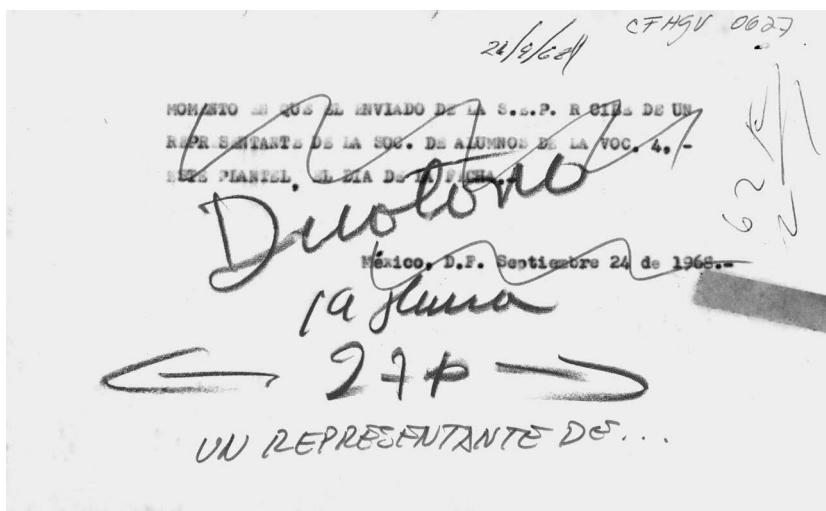 CFHGV 0627
24/9/68
MOMANTO EN QUE EL ENVIADO DE LA S.E.P. R CIBE DE UN
REPR SENTANTE DE LA SOC. DE ALUMNOS DE LA VOC. 4,-
ESTE PLANTEL, EL DIA DE LA FECHA.-
Duotono
México, D.F. Septiembre 24 de 1968.-
1a plana
27p
UN REPRESENTANTE DE...